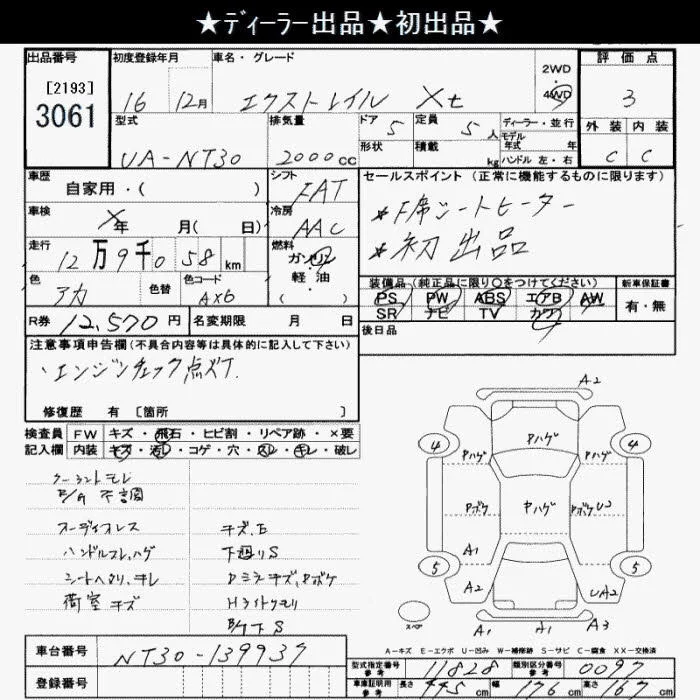 ★ディーラー出品★初出品★
出品番号
[2193]
3061
初度登録年月
16 12月
車名・グレード
エクストレイル Xt
2WD
・
4WD
評価点
3
型式
UA-NT30
排気量
2000cc
ドア 5
形状
定員 5人
積載 kg
ディーラー・並行
モデル
年式 年
ハンドル 左・右
外装 内装
C C
車歴
自家用・( )
シフト
FAT
セールスポイント(正常に機能するものに限ります)
★F席シートヒーター
★初出品
車検
年 月( 日)
冷房
AAC
走行
12万9千058km
燃料
ガソリン
軽・油
・( )
色
アカ
色替
色コード
AX6
装備品(純正品に限り○をつけてください)
PS PW ABS エアB AW
SR ナビ TV カワ
新車保証書
有・無
R券 12,570円
名変期限 月 日
後日品
注意事項申告欄(不具合内容等は具体的に記入して下さい)
・エンジンチェック点灯
修復歴 有 [箇所 ]
検査員 FW キズ・飛石・ヒビ割・リペア跡・×要
記入欄 内装 キズ・汚レ・コゲ・穴・スレ・キレ・破レ
クーラントモレ
E/G 不調
オーディオレス
ハンドルスレ,ハゲ
シートヘタリ,キレ
荷室キズ
キズ,E
下廻りS
Dミラキズ,Pボケ
Hライトクモリ
A2
4
Pハゲ
Pハゲ
Pハゲ
4
Pボケ
Pハゲ
Pボケ U3
A1
5
5
A2
UA2
スペア
A1
A1
A3
A-キズ E-エクボ U-凹み W-補修跡 S-サビ C-腐食 XX-交換済
車台番号
NT30-139937
登録番号
型式指定番号
参考
11828
類別区分番号
参考
0097
車庫証明用
参考
長さ 445cm 幅 176cm 高さ 167cm